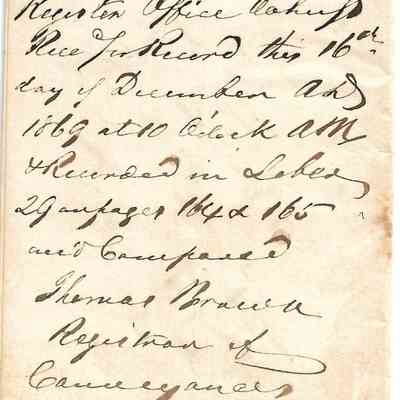 Register Office Oahu
Recd for Record this 16th
day of December AD
1869 at 10 O'clock AM
& Recorded in Liber
29 on pages 164 & 165
and Compared
Thomas Brown
Registrar of
Conveyances